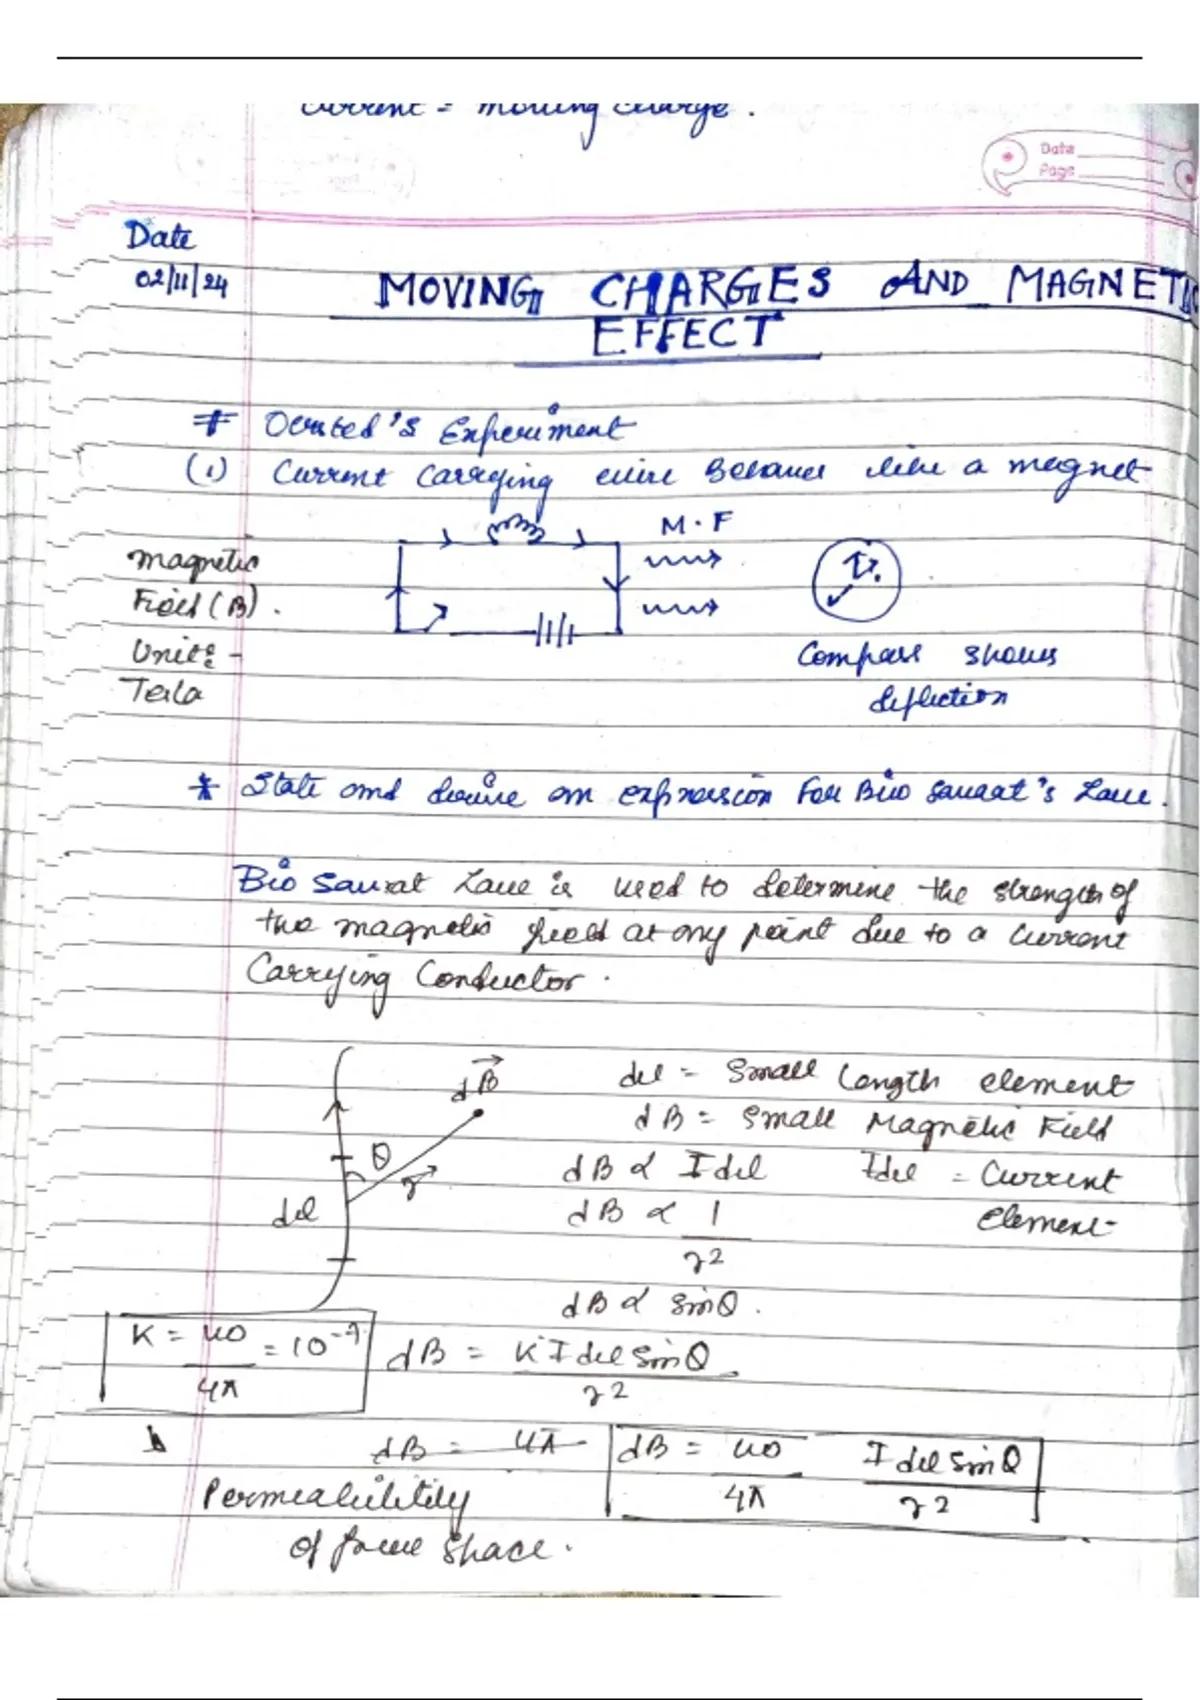 Current = moving charge.
Date
Page
Date
02/11/24
MOVING CHARGES AND MAGNETIC
EFFECT
# Oersted's Experiment
(1) Current Carrying wire Behaves like a magnet
M.F
magnetic
Field (B).
Unit :-
Tesla
Compass shows
deflection
* State and derive an expression For Bio Savart's Law.
Bio Savart Law is used to determine the strength of
the magnetic field at any point due to a Current
Carrying Conductor.
dB
θ
r
del
del = Small Length element
dB = Small Magnetic Field
dB ∝ I del Idel = Current
element
dB ∝ 1
r2
dB ∝ sinθ.
K = uo = 10-7
4π
dB = K I del Sinθ
r2
dB = 4π
dB = uo I del Sinθ
4π r2
Permeabilitily
of free space.